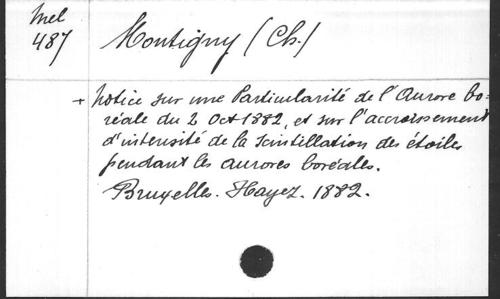 Mel
487
Montigny (Ch.)
+ Notice sur une Particularité de l'Aurore bo-
réale du 2 Oct 1882, et sur l'accroissement
d'intensité de la scintillation des étoiles
pendant les aurores boréales.
Bruxelles. Hayez. 1882.